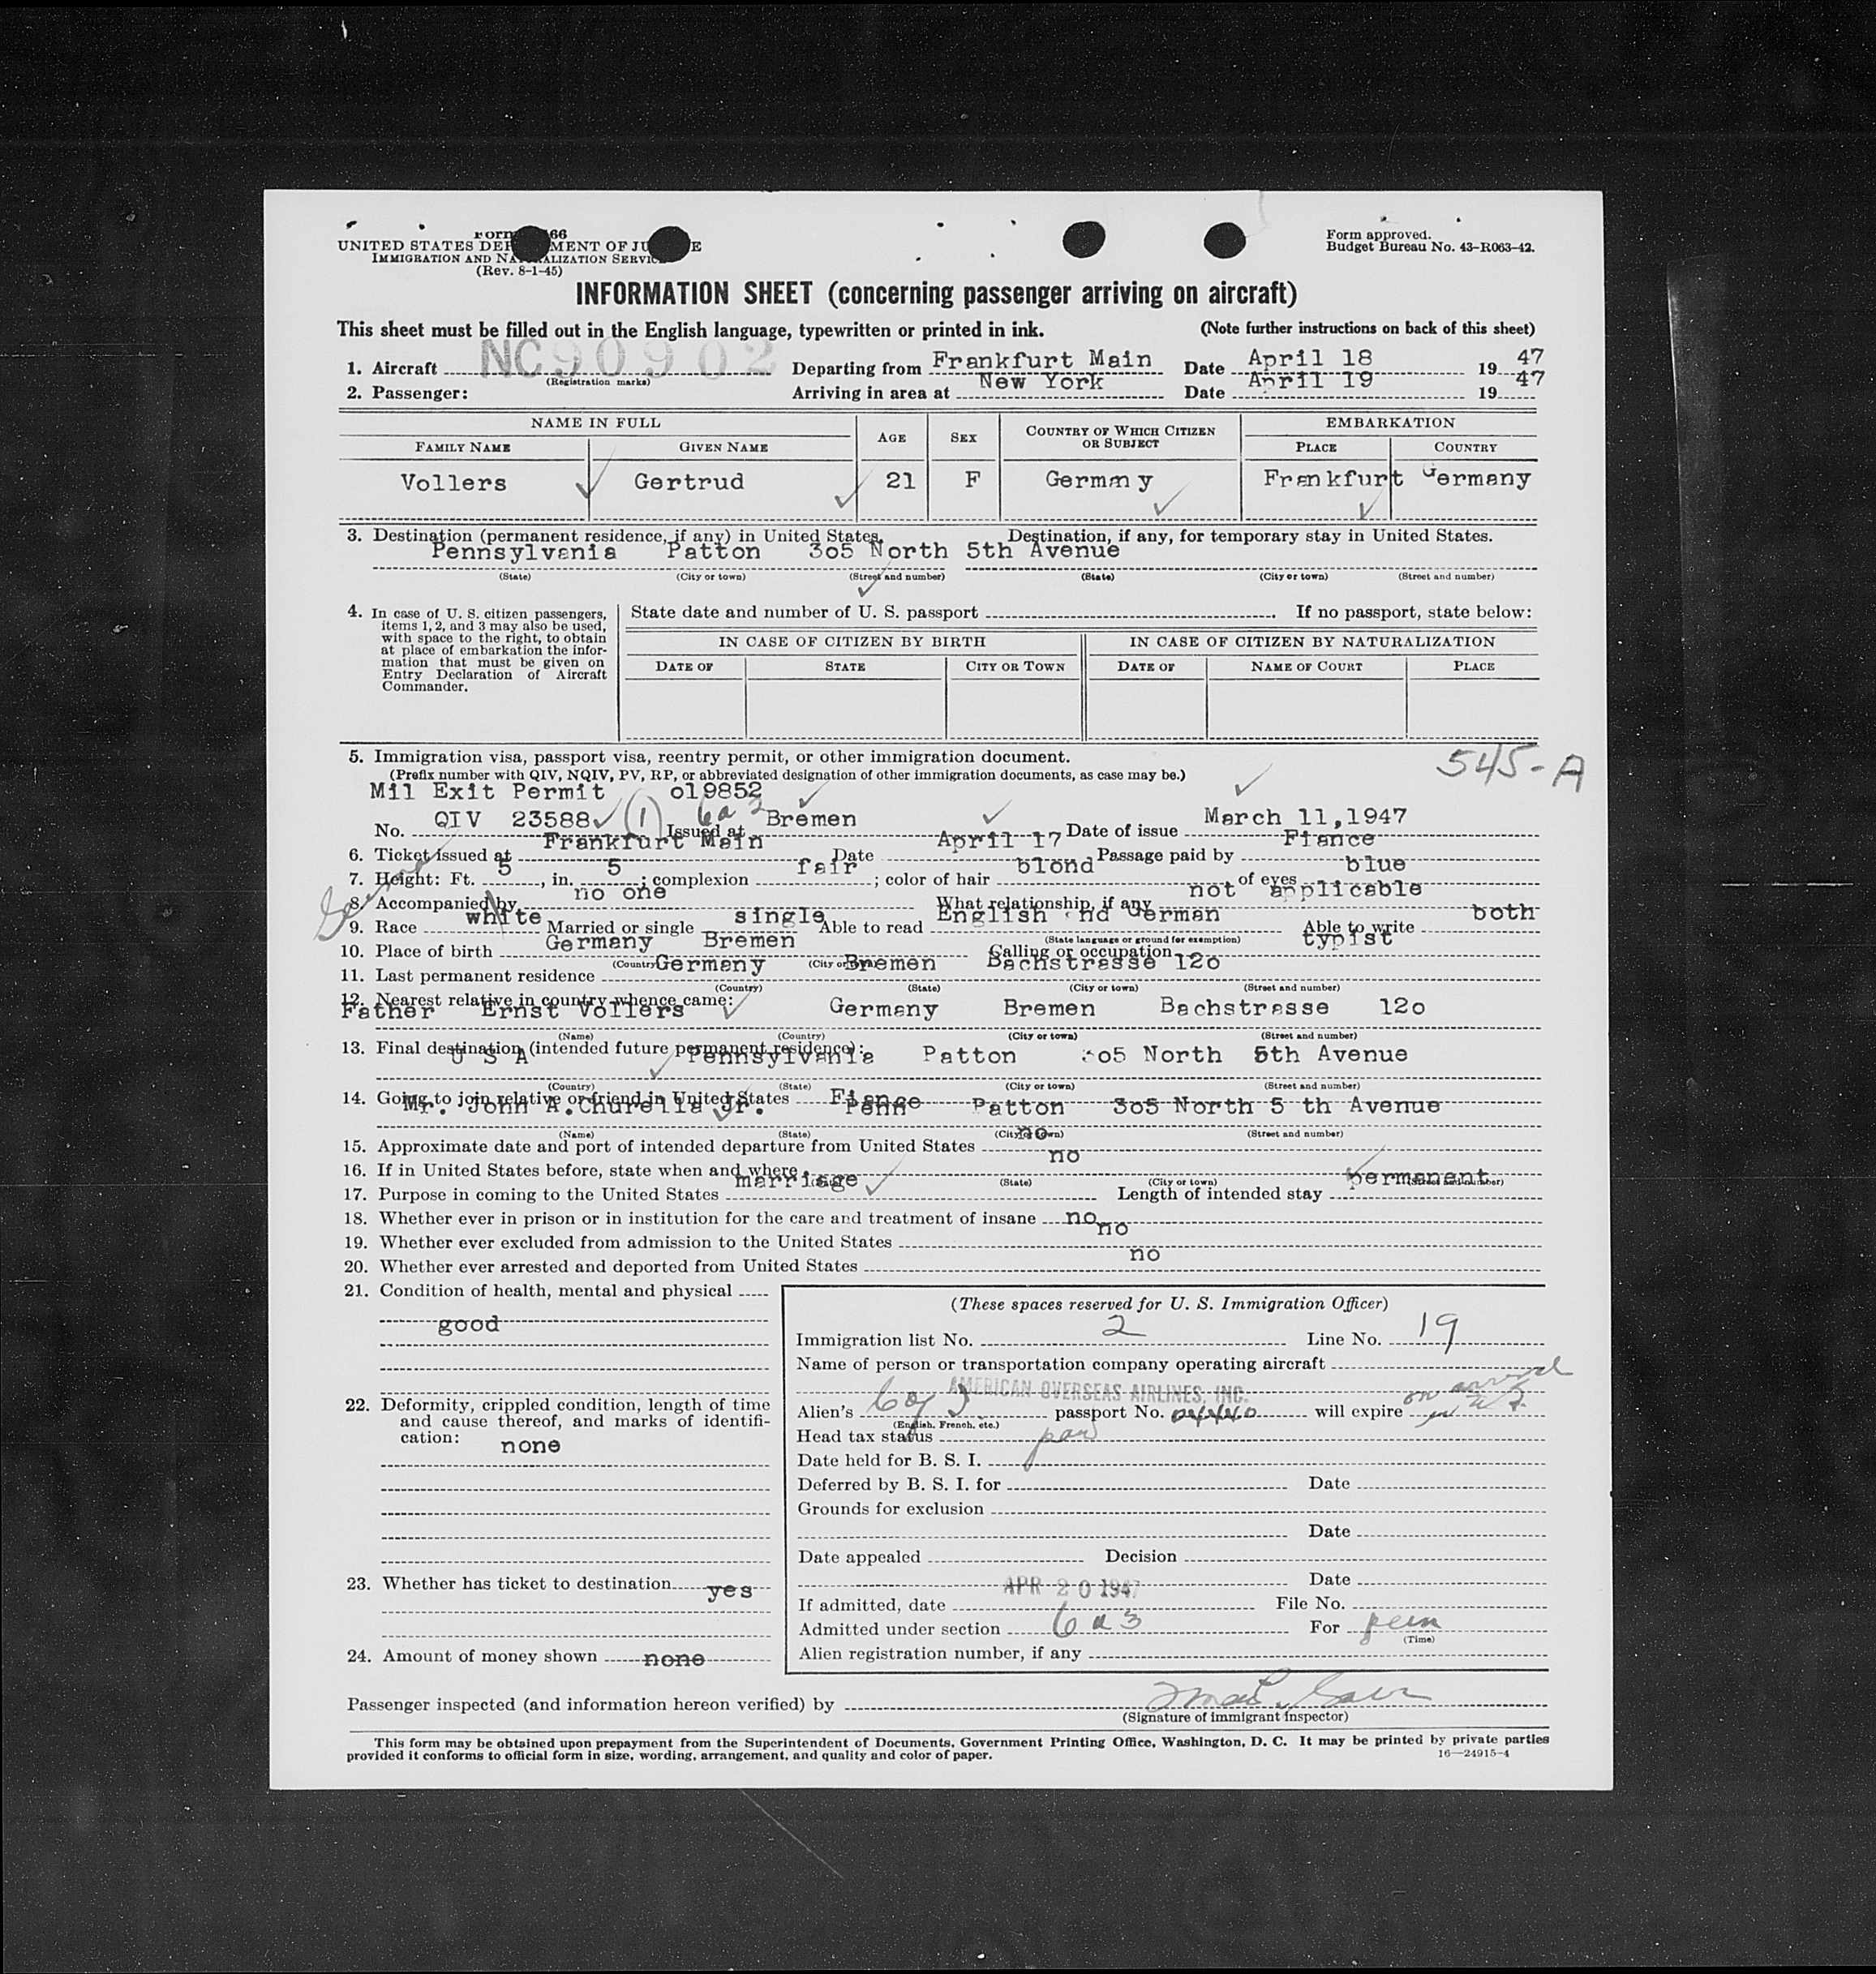 Form 66
UNITED STATES DEP MENT OF JU E
IMMIGRATION AND NA ALIZATION SERVIC
(Rev. 8-1-45)
Form approved.
Budget Bureau No. 43-R063-42.
INFORMATION SHEET (concerning passenger arriving on aircraft)
This sheet must be filled out in the English language, typewritten or printed in ink. (Note further instructions on back of this sheet)
1. Aircraft NC90902 Departing from Frankfurt Main Date April 18 19 47
(Registration marks)
2. Passenger: Arriving in area at New York Date April 19 19 47
NAME IN FULL AGE SEX COUNTRY OF WHICH CITIZEN OR SUBJECT EMBARKATION
FAMILY NAME GIVEN NAME PLACE COUNTRY
Vollers Gertrud 21 F Germany Frankfurt Germany
3. Destination (permanent residence, if any) in United States. Destination, if any, for temporary stay in United States.
Pennsylvania Patton 3o5 North 5th Avenue
(State) (City or town) (Street and number) (State) (City or town) (Street and number)
4. In case of U. S. citizen passengers, items 1, 2, and 3 may also be used, with space to the right, to obtain at place of embarkation the information that must be given on Entry Declaration of Aircraft Commander.
State date and number of U. S. passport . If no passport, state below:
IN CASE OF CITIZEN BY BIRTH IN CASE OF CITIZEN BY NATURALIZATION
DATE OF STATE CITY OR TOWN DATE OF NAME OF COURT PLACE
5. Immigration visa, passport visa, reentry permit, or other immigration document.
(Prefix number with QIV, NQIV, PV, RP, or abbreviated designation of other immigration documents, as case may be.)
545-A
Mil Exit Permit o19852
No. QIV 23588 (1) 6a3 Issued at Bremen Date of issue March 11,1947
6. Ticket issued at Frankfurt Main Date April 17 Passage paid by Fiance
7. Height: Ft. 5, in. 5; complexion fair; color of hair blond of eyes blue
8. Accompanied by no one What relationship, if any not applicable
9. Race white Married or single single Able to read English and German Able to write both
(State language or ground for exemption)
10. Place of birth Germany Bremen Calling or occupation typist
(Country) (City or town)
11. Last permanent residence Germany Bremen Bachstrasse 12o
(Country) (State) (City or town) (Street and number)
12. Nearest relative in country whence came:
Father Ernst Vollers Germany Bremen Bachstrasse 12o
(Name) (Country) (City or town) (Street and number)
13. Final destination (intended future permanent residence):
U S A Pennsylvania Patton 3o5 North 5th Avenue
(Country) (State) (City or town) (Street and number)
14. Going to join relative or friend in United States Fiance
Mr. John A.Churella Jr. Penn Patton 3o5 North 5 th Avenue
(Name) (State) (City or town) (Street and number)
15. Approximate date and port of intended departure from United States no
16. If in United States before, state when and where no
(State) (City or town) (Street and number)
17. Purpose in coming to the United States marriage Length of intended stay permanent
18. Whether ever in prison or in institution for the care and treatment of insane no
19. Whether ever excluded from admission to the United States no
20. Whether ever arrested and deported from United States no
21. Condition of health, mental and physical
good
22. Deformity, crippled condition, length of time and cause thereof, and marks of identification:
none
23. Whether has ticket to destination yes
24. Amount of money shown none
(These spaces reserved for U. S. Immigration Officer)
Immigration list No. 2 Line No. 19
Name of person or transportation company operating aircraft
AMERICAN OVERSEAS AIRLINES, INC.
Alien's passport No. 04440 will expire on arrival
(English, French, etc.)
Head tax status
Date held for B. S. I.
Deferred by B. S. I. for Date
Grounds for exclusion
Date
Date appealed Decision
Date
If admitted, date APR 20 1947 File No.
Admitted under section 6 a 3 For perm
(Time)
Alien registration number, if any
Passenger inspected (and information hereon verified) by
(Signature of immigrant inspector)
This form may be obtained upon prepayment from the Superintendent of Documents, Government Printing Office, Washington, D. C. It may be printed by private parties
provided it conforms to official form in size, wording, arrangement, and quality and color of paper. 16—24915-4